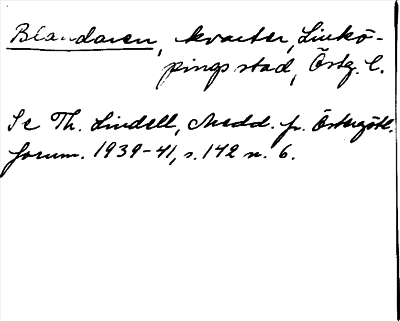 Blandaren, kvarter, Linkö-
pings stad, Östg. l.
Se Th. Lindell, Medd. fr. Östergötl.
fornm. 1939-41, s. 142 n. 6.